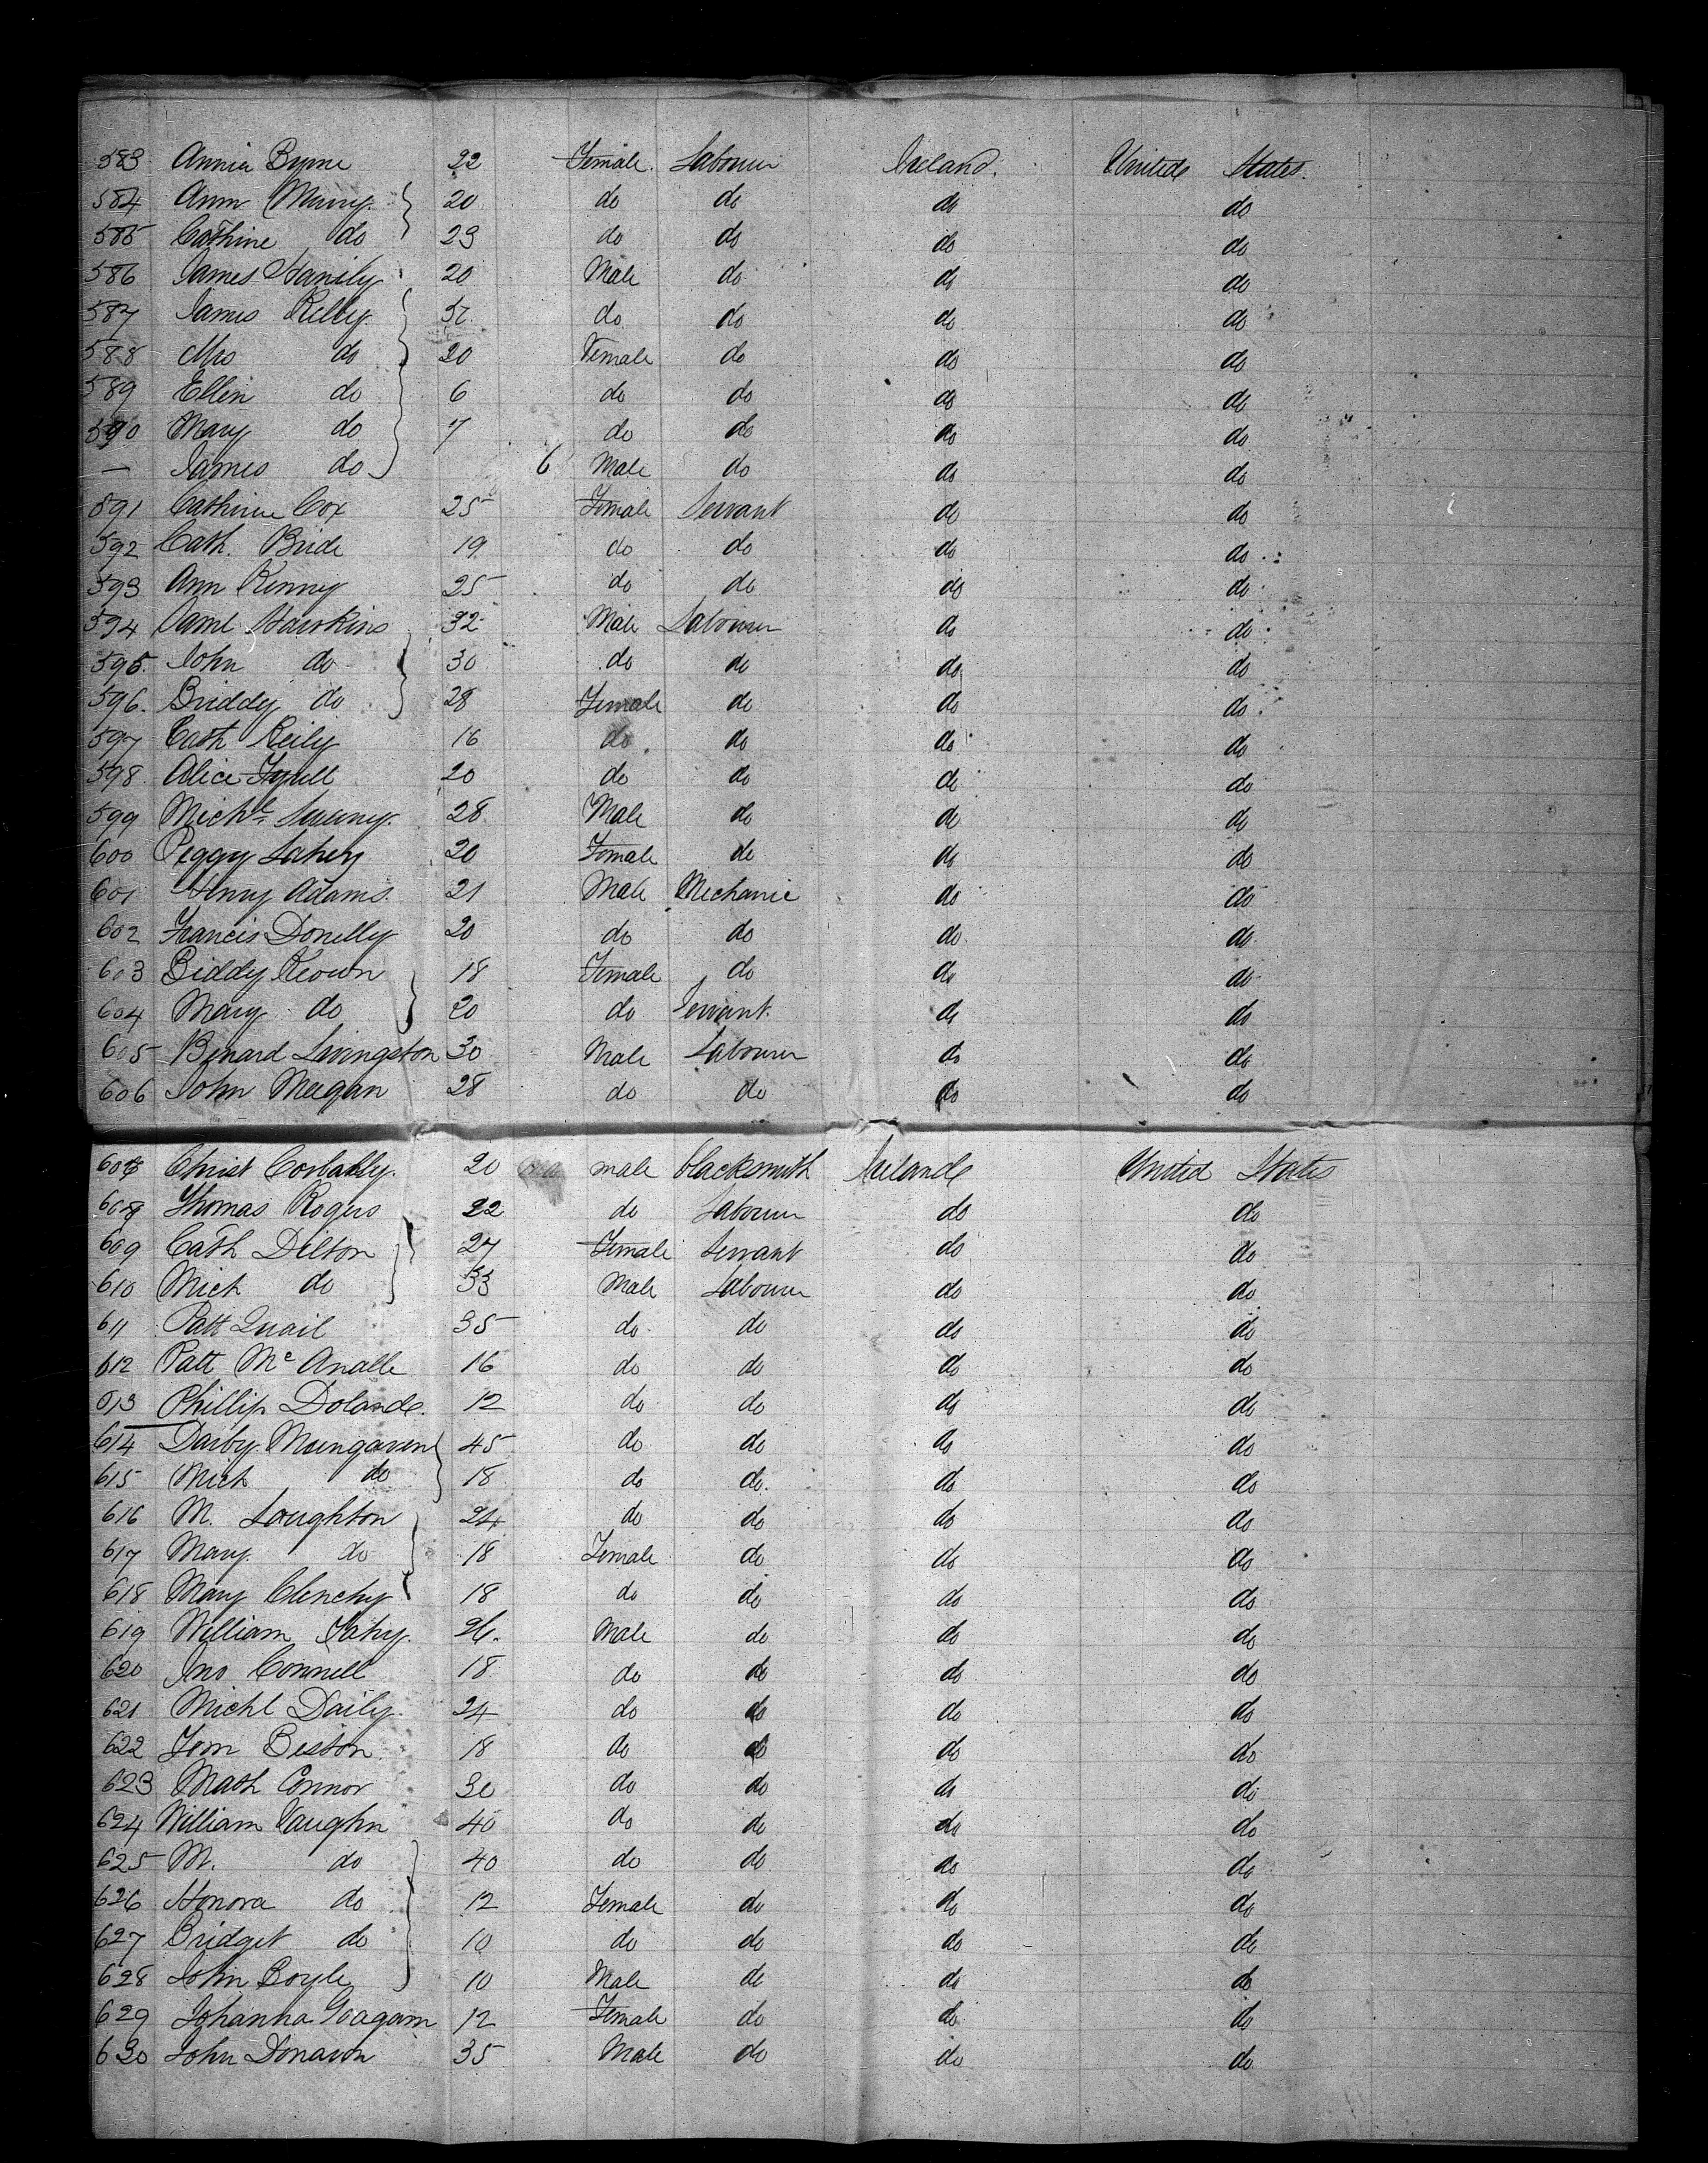 583 Annia Byrne 22 Female. Labourer Ireland. United States.
584 Ann Murry. 20 do do do do
585 Cathine do 23 do do do do
586 James Hanily 20 Male do do do
587 James Kelly. do do do do
588 Mrs do 20 Female do do do
589 Ellin do 6 do do do do
590 Mary do 7 do do do do
— James do 6 Male do do do
591 Cathrine Cox 25 Female Servant do do
592 Cath. Bride 19 do do do do
593 Ann Kenny 25 do do do do
594 Saml Hawkins 32 Male Labourer do do
595. John do 30 do do do do
596. Briddy do 28 Female do do do
597 Cath Reily 16 do do do do
598 Alice 20 do do do do
599 Michl. 28 Male do do do
600 Peggy Lahey 20 Female do do do
601 Henry Adams. 21 Male Mechanic do do
602 Francis Donelly 20 do do do do
603 Biddy Keown 18 Female do do do
604 Mary do 20 do Servant. do do
605 Benard Livingston 30 Male Labourer do do
606 John Meegan 28 do do do do
607 Christ 20 male blacksmith Ireland United States
608 Thomas Rogers 22 do Labourer do do
609 Cath Dillon 27 Female Servant do do
610 Mich do 33 Male Labourer do do
611 Patt Quail 35 do do do do
612 Patt Mc Analle 16 do do do do
613 Phillip Doland. 12 do do do do
614 Darby Mungaven 45 do do do do
615 Mich do 18 do do. do do
616 M. Loughton 24 do do do do
617 Mary. do 18 Female do do do
618 Mary Clenchy 18 do do do do
619 William Fahy. 26. Male do do do
620 Jno Connell 18 do do do do
621 Michl Daily. 24 do do do do
622 Tom Beston 18 do do do do
623 Math Connor 30 do do do do
624 William Vaughn 40 do do do do
625 M. do 40 do do do do
626 Honora do 12 Female do do do
627 Bridget do 10 do do do do
628 John Boyle 10 Male do do do
629 Johanna 12 Female do do do
630 John Donavon 35 Male do do do